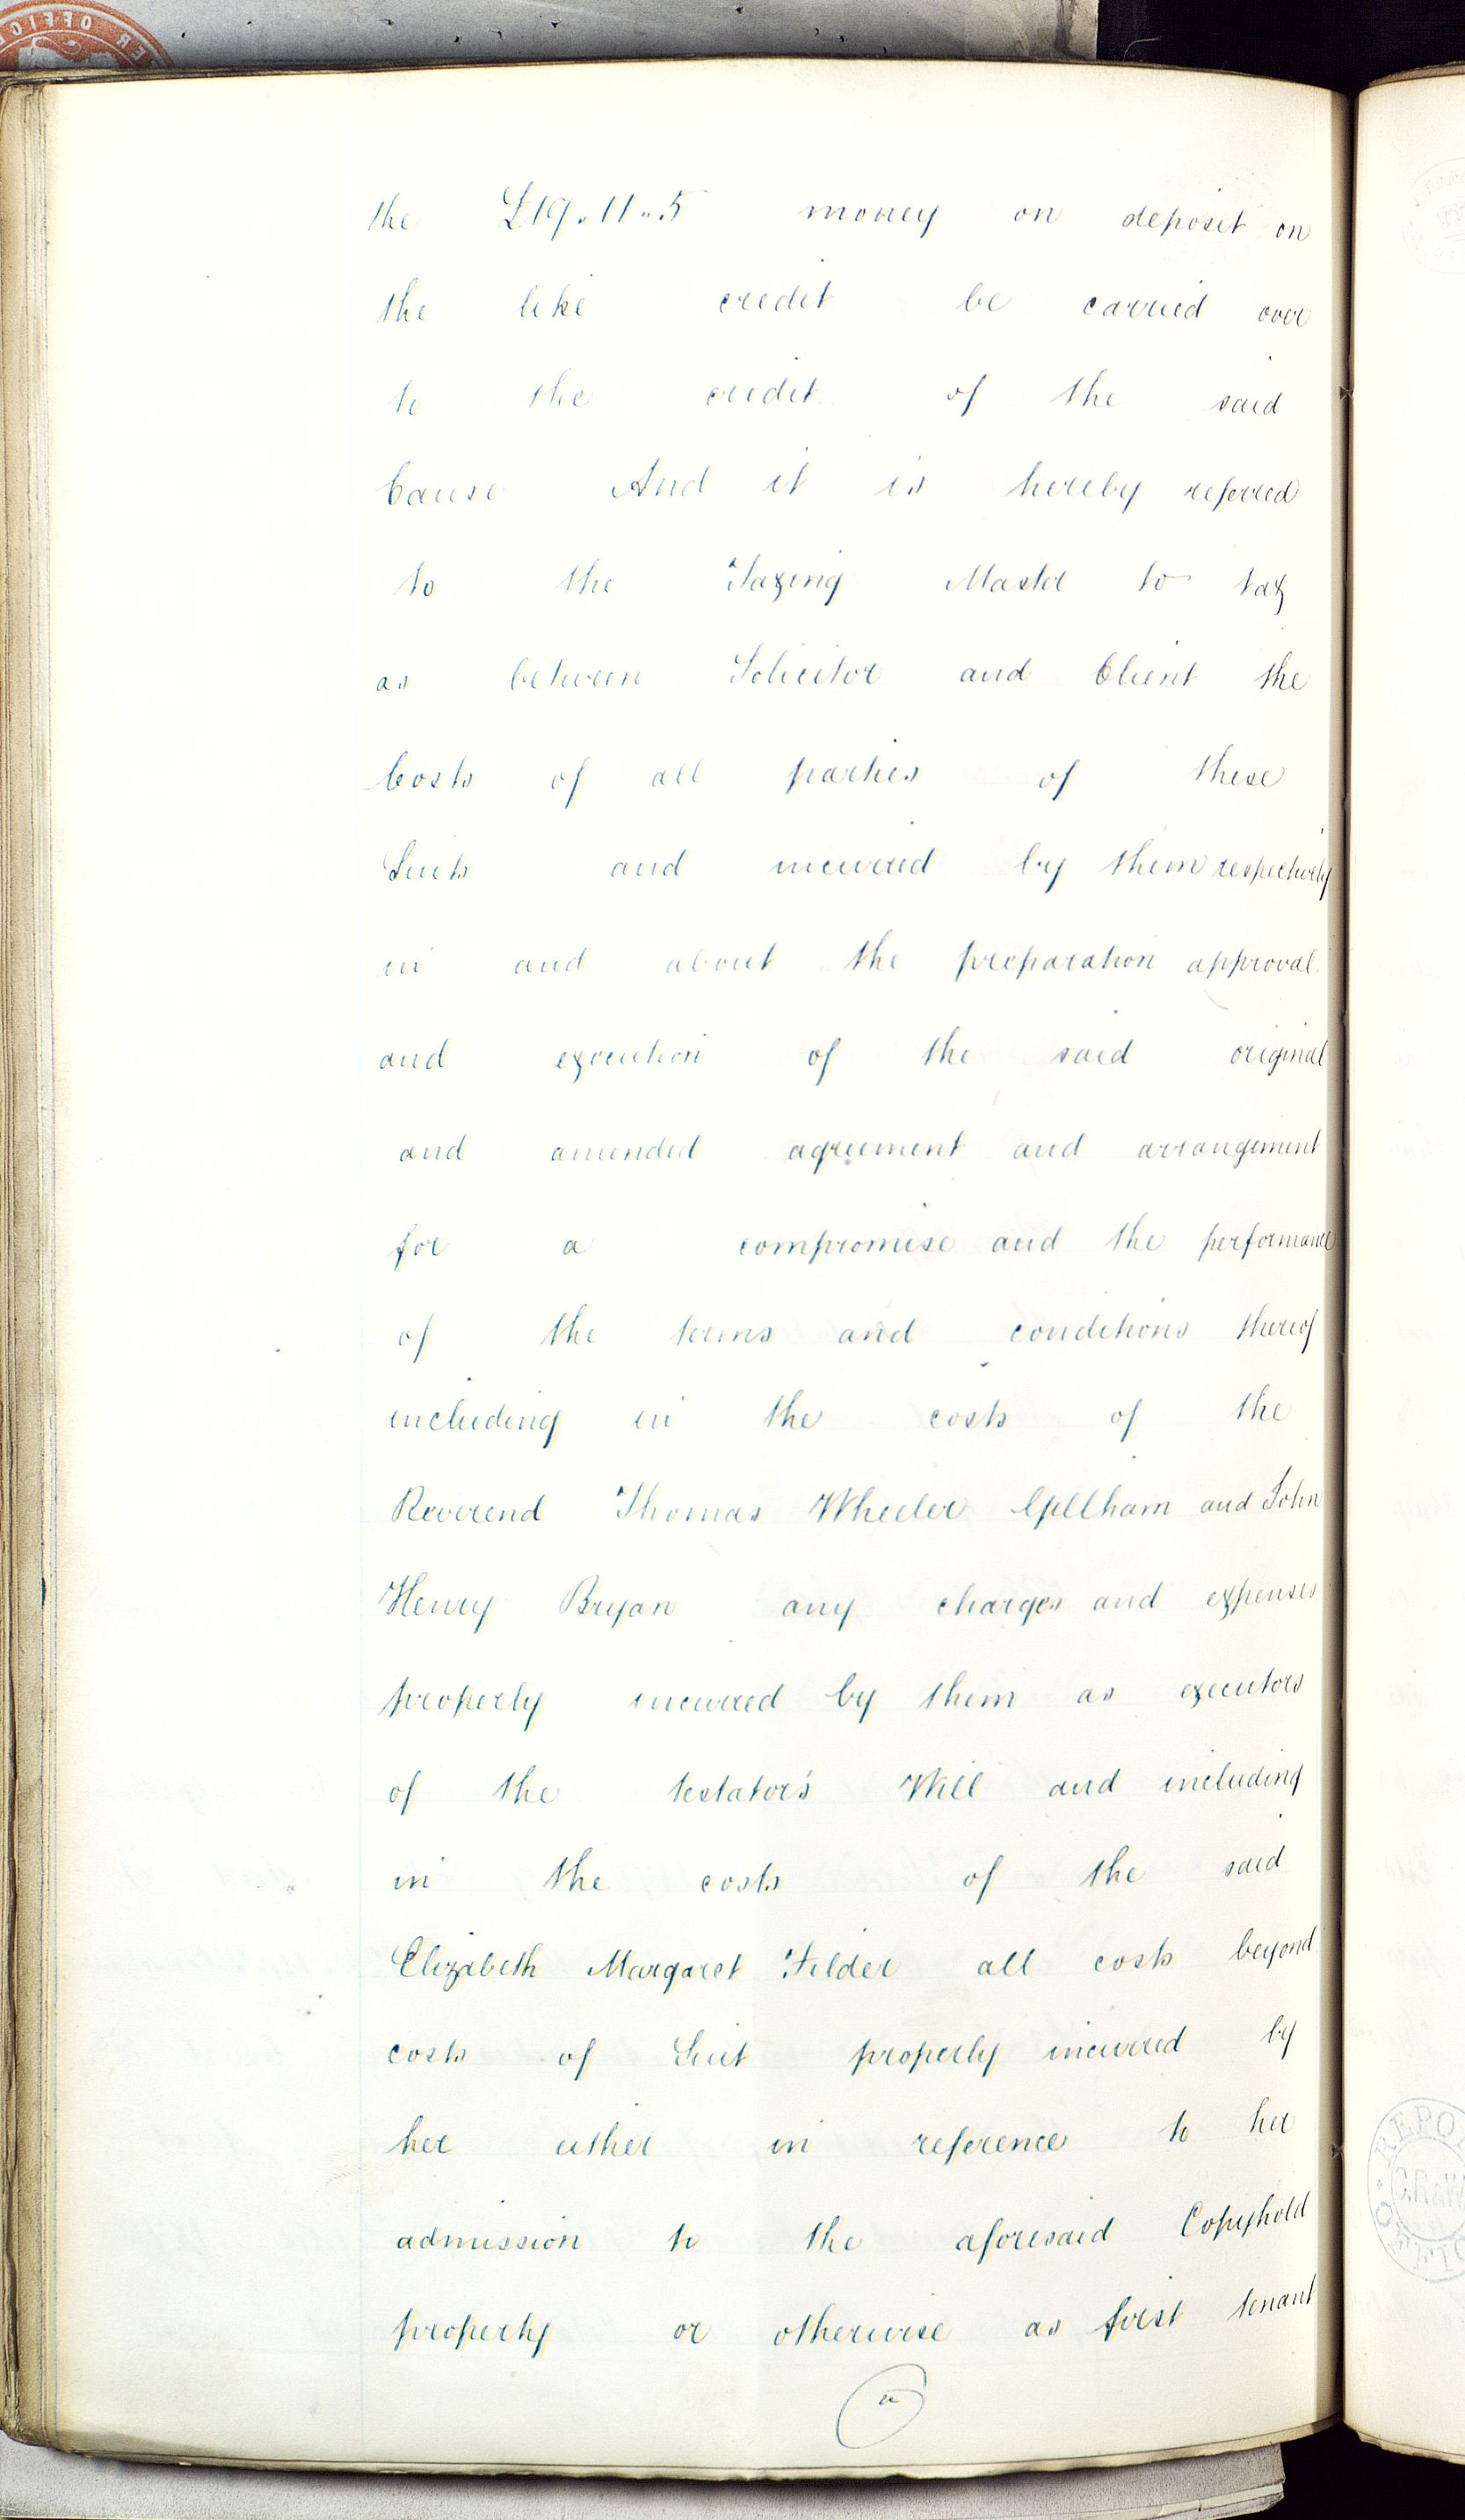 the £19.11.5 money on deposit on
the like credit be carried over
to the credit of the said
Cause And it is hereby referred
to the Taxing Master to tax
as between Solicitor and Client the
Costs of all parties of these
Suits and incurred by them respectively
in and about the preparation approval
and execution of the said original
and amended agreement and arrangement
for a compromise and the performance
of the terms and conditions thereof
including in the costs of the
Reverend Thomas Wheeler Gillham and John
Henry Bryan any charges and expenses
properly incurred by them as executors
of the testator's Will and including
in the costs of the said
Elizabeth Margaret Filder all costs beyond
costs of Suit properly incurred by
her either in reference to her
admission to the aforesaid Copyhold
property or otherwise as first tenant